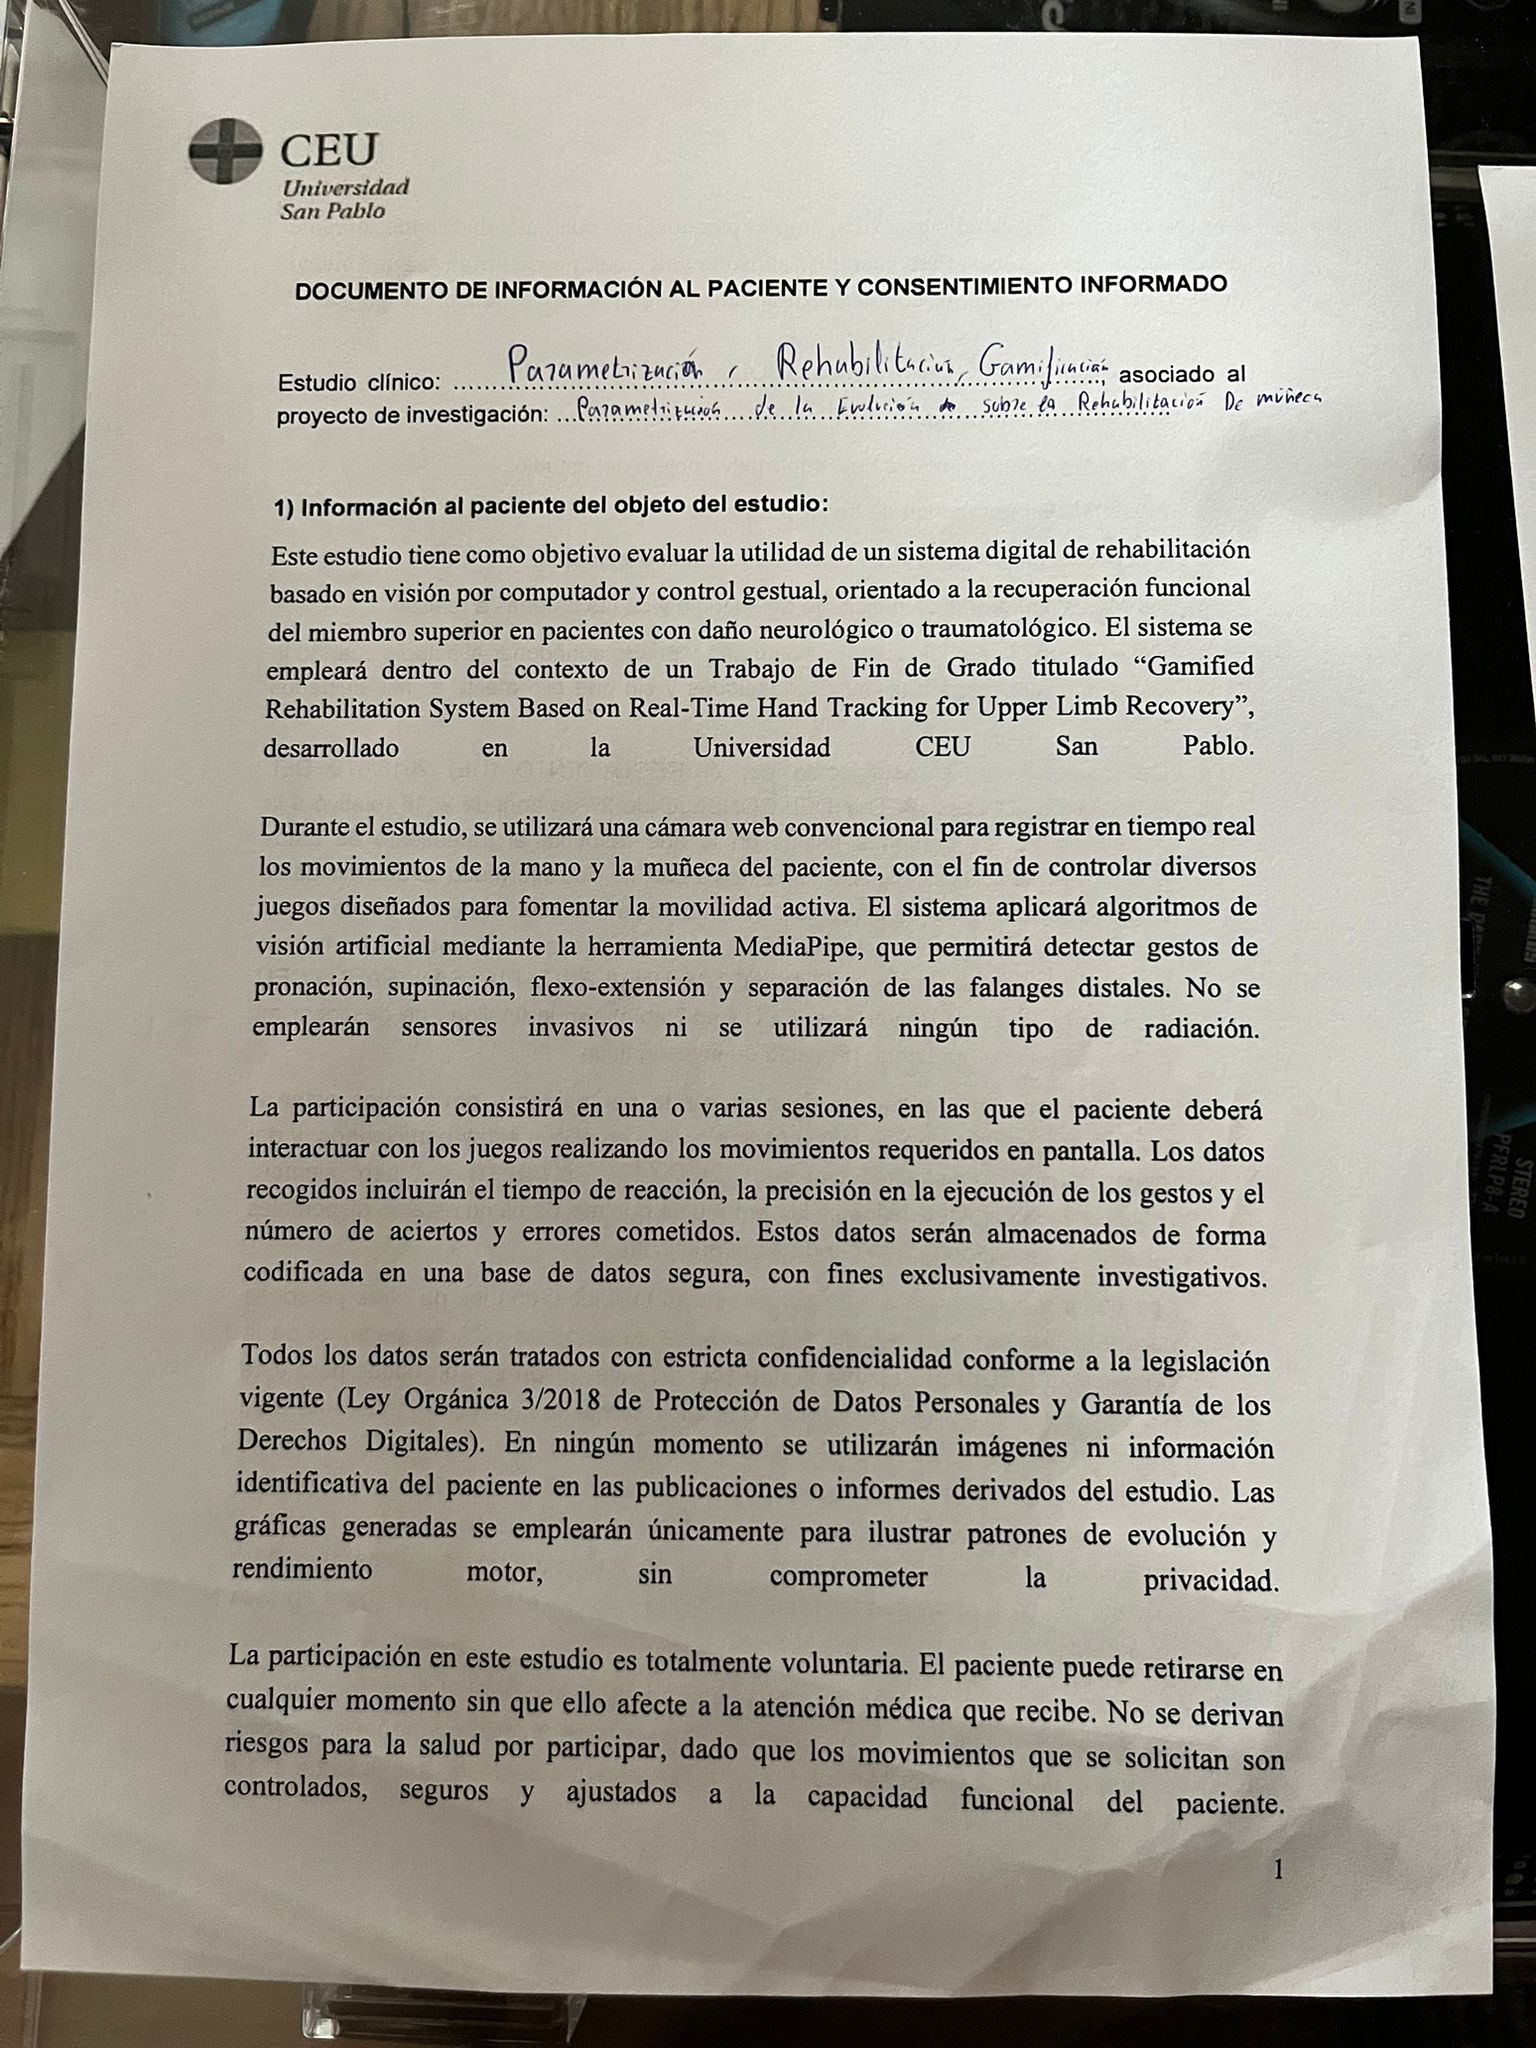 CEU
Universidad
San Pablo
DOCUMENTO DE INFORMACIÓN AL PACIENTE Y CONSENTIMIENTO INFORMADO
Estudio clínico: Parametrización, Rehabilitación, Gamificación, asociado al
proyecto de investigación: Parametrización de la Evolución sobre la Rehabilitación De muñeca
1) Información al paciente del objeto del estudio:
Este estudio tiene como objetivo evaluar la utilidad de un sistema digital de rehabilitación
basado en visión por computador y control gestual, orientado a la recuperación funcional
del miembro superior en pacientes con daño neurológico o traumatológico. El sistema se
empleará dentro del contexto de un Trabajo de Fin de Grado titulado “Gamified
Rehabilitation System Based on Real-Time Hand Tracking for Upper Limb Recovery”,
desarrollado en la Universidad CEU San Pablo.
Durante el estudio, se utilizará una cámara web convencional para registrar en tiempo real
los movimientos de la mano y la muñeca del paciente, con el fin de controlar diversos
juegos diseñados para fomentar la movilidad activa. El sistema aplicará algoritmos de
visión artificial mediante la herramienta MediaPipe, que permitirá detectar gestos de
pronación, supinación, flexo-extensión y separación de las falanges distales. No se
emplearán sensores invasivos ni se utilizará ningún tipo de radiación.
La participación consistirá en una o varias sesiones, en las que el paciente deberá
interactuar con los juegos realizando los movimientos requeridos en pantalla. Los datos
recogidos incluirán el tiempo de reacción, la precisión en la ejecución de los gestos y el
número de aciertos y errores cometidos. Estos datos serán almacenados de forma
codificada en una base de datos segura, con fines exclusivamente investigativos.
Todos los datos serán tratados con estricta confidencialidad conforme a la legislación
vigente (Ley Orgánica 3/2018 de Protección de Datos Personales y Garantía de los
Derechos Digitales). En ningún momento se utilizarán imágenes ni información
identificativa del paciente en las publicaciones o informes derivados del estudio. Las
gráficas generadas se emplearán únicamente para ilustrar patrones de evolución y
rendimiento motor, sin comprometer la privacidad.
La participación en este estudio es totalmente voluntaria. El paciente puede retirarse en
cualquier momento sin que ello afecte a la atención médica que recibe. No se derivan
riesgos para la salud por participar, dado que los movimientos que se solicitan son
controlados, seguros y ajustados a la capacidad funcional del paciente.
1
STEREO